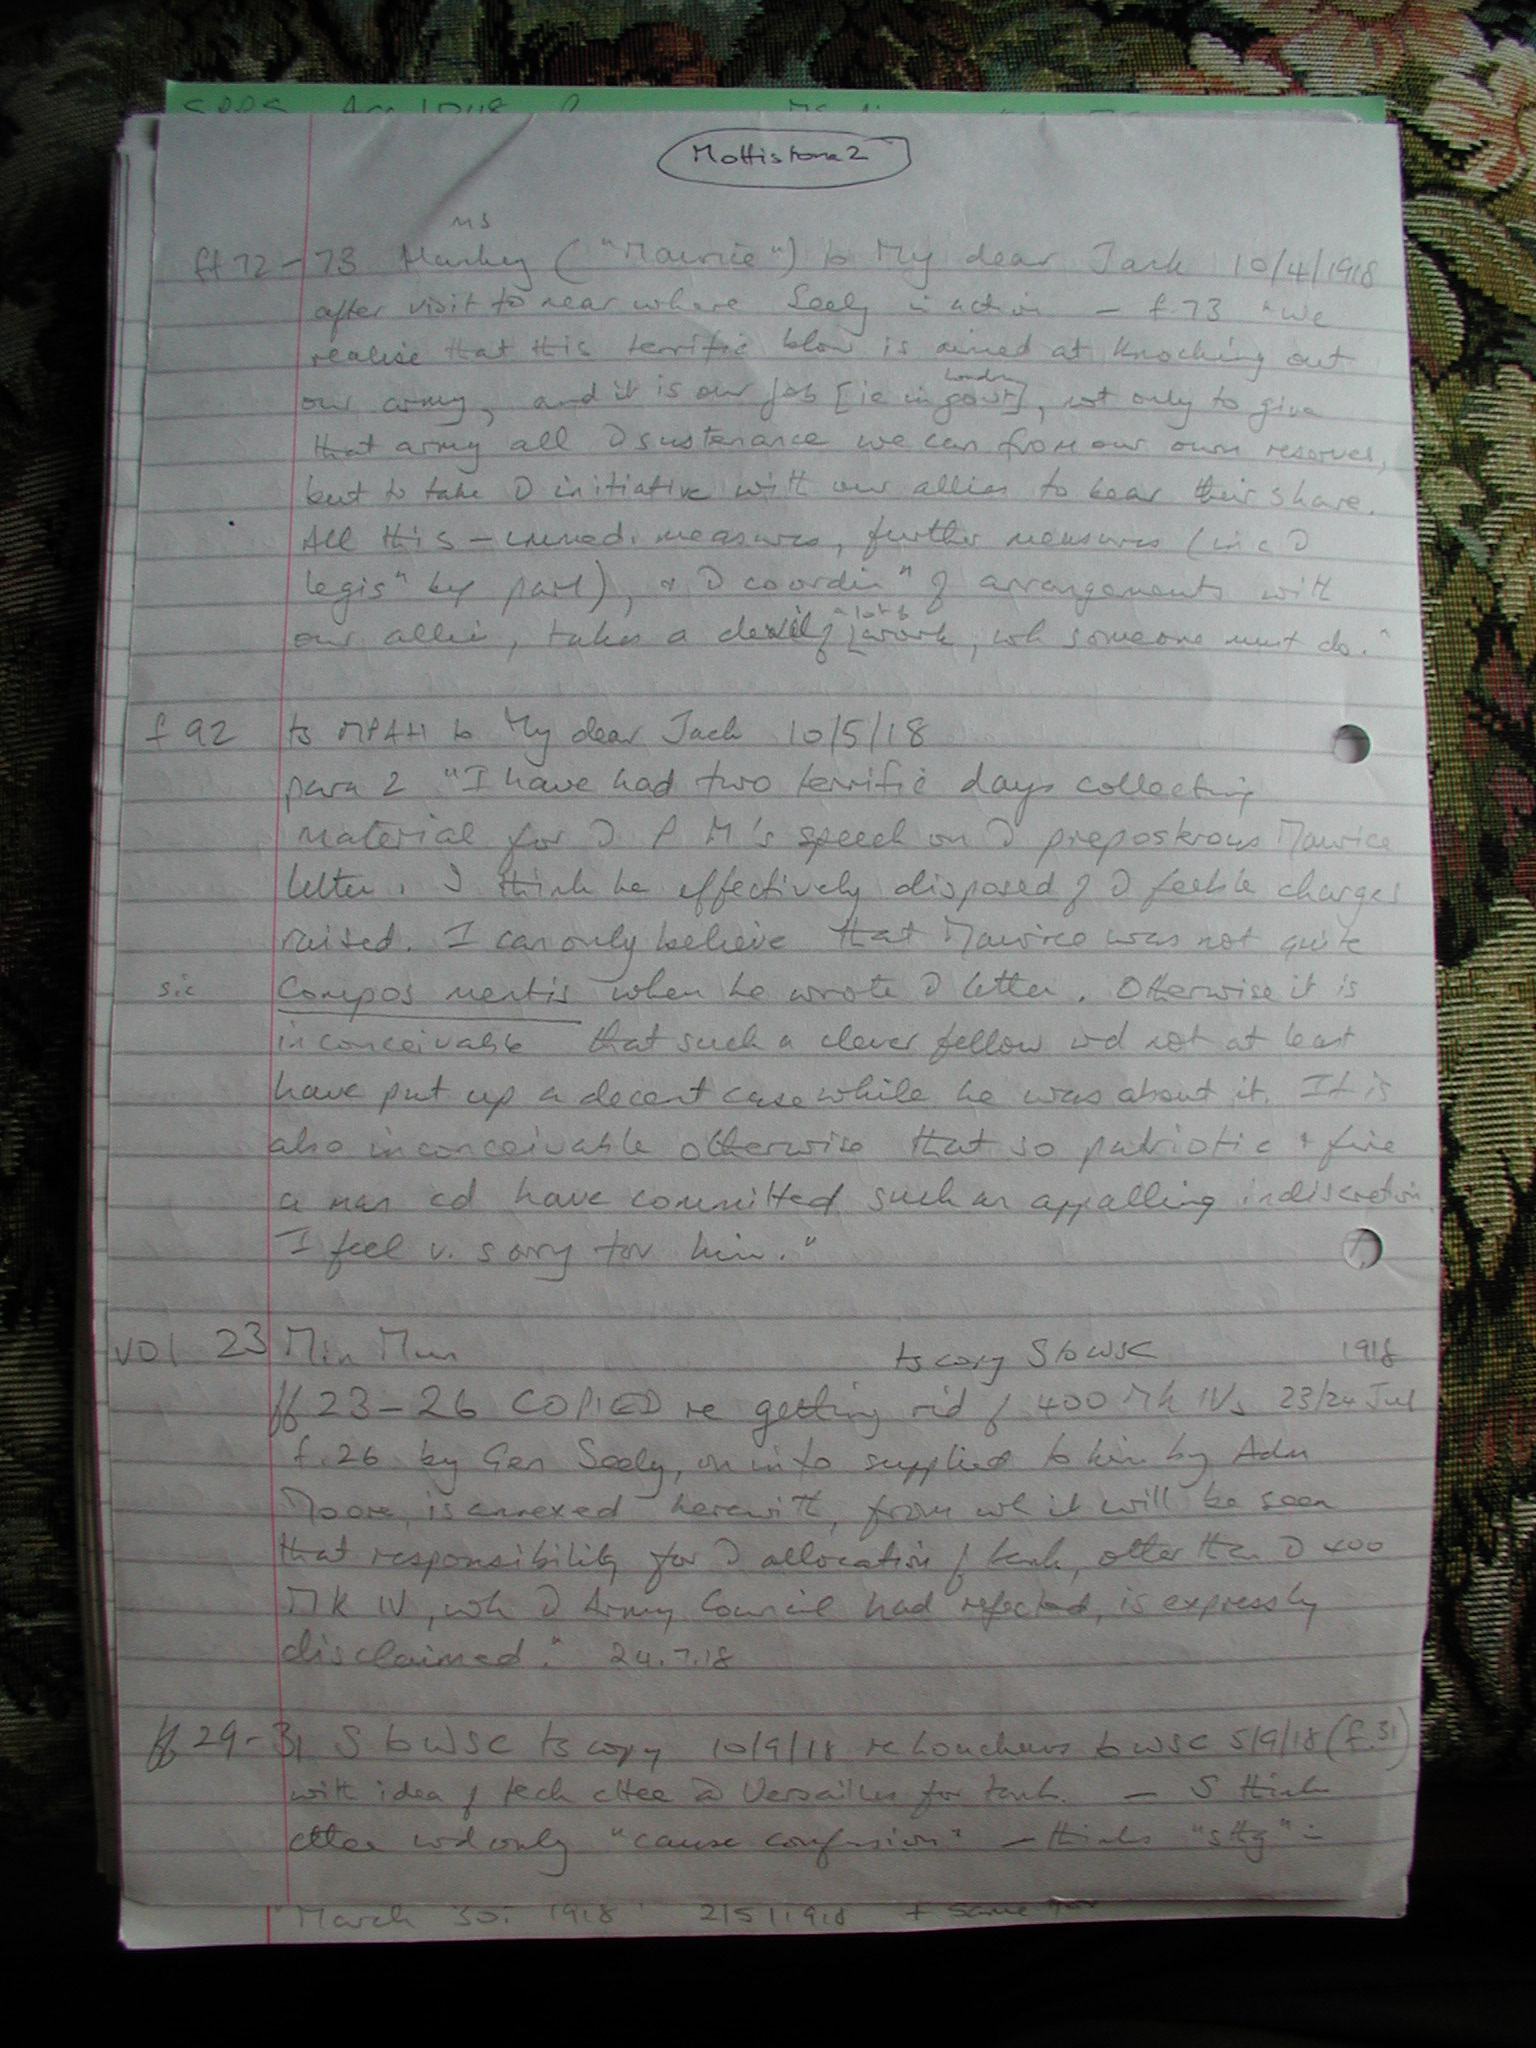 Mottistone 2
MS
ff 72-73 Hankey ("Maurice") to My dear Jack 10/4/1918
after visit to near where Seely in action - f.73 "We
realise that this terrific blow is aimed at knocking out
London
our army, and it is our job [ie in govt], not only to give
that army all D sustenance we can from our own reserves,
but to take D initiative with our allies to bear their share.
All this - immed. measures, further measures (inc D
legisn by parl), & D coordinn of arrangements with
a lot of
our allies, takes a devil of [work, wh someone must do."
f 92 ts MPAH to My dear Jack 10/5/18
para 2 "I have had two terrific days collecting
material for D P M's speech on D preposterous Maurice
letter. I think he effectively disposed of D feeble charges
raised. I can only believe that Maurice was not quite
sic compos mentis when he wrote D letter. Otherwise it is
inconceivable that such a clever fellow wd not at least
have put up a decent case while he was about it. It is
also inconceivable otherwise that so patriotic + fine
a man cd have committed such an appalling indiscretion.
I feel v. sorry for him."
vol 23 Min Mun ts copy S to WSC 1918
ff 23-26 COPIED re getting rid of 400 Mk IVs 23/24 Jul
f.26 by Gen Seely, on info supplied to him by Adm
Moore, is annexed herewith, from wh it will be seen
that responsibility for D allocation of tanks, other than D 400
Mk IV, wh D Army Council had rejected, is expressly
disclaimed." 24.7.18
ff 29-31 S to WSC ts copy 10/9/18 re Loucheur to WSC 5/9/18 (f.31)
with idea of tech cttee @ Versailles for tanks. - S thinks
cttee wd only "cause confusion" - thinks "sthg" -
"March 30: 1918" 2/5/1918 + same for